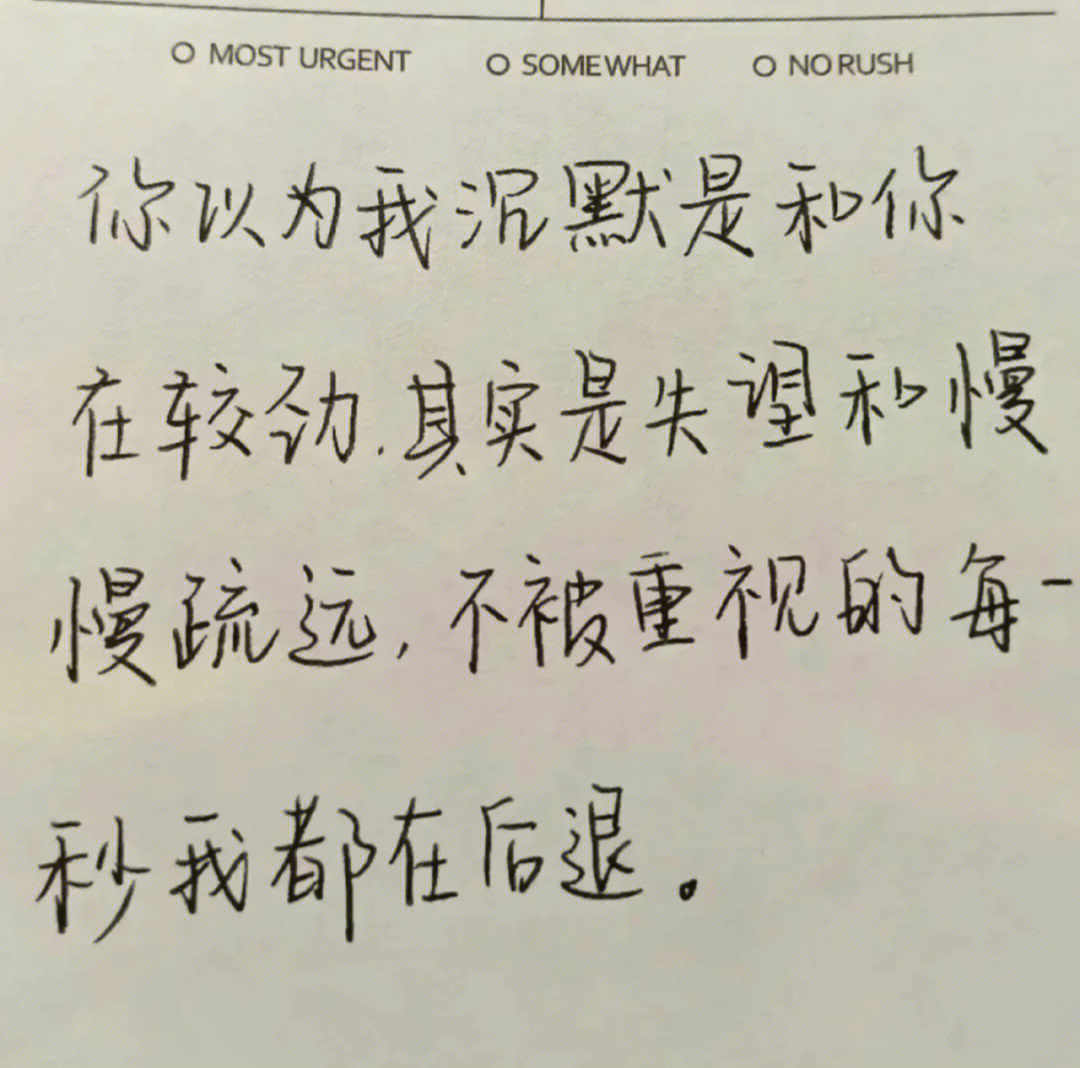 ○ MOST URGENT ○ SOMEWHAT ○ NO RUSH
你以为我沉默是和你
在较劲.其实是失望和慢
慢疏远,不被重视的每一
秒我都在后退。